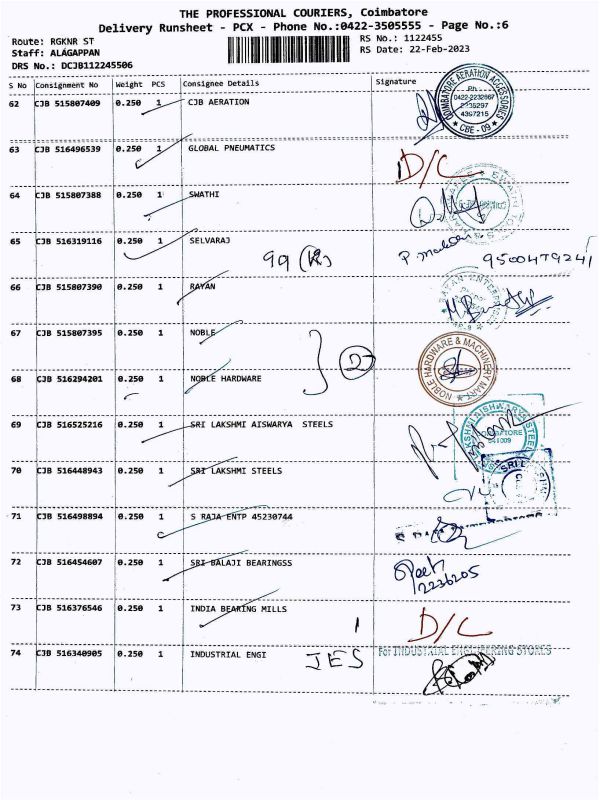 THE PROFESSIONAL COURIERS, Coimbatore
Delivery Runsheet - PCX - Phone No.:0422-3505555 - Page No.:6
Route: RGKNR ST RS No.: 1122455
Staff: ALAGAPPAN RS Date: 22-Feb-2023
DRS No.: DCJB112245506
S No Consignment No Weight PCS Consignee Details Signature
62 CJB 515807409 0.250 1 CJB AERATION
COIMBATORE AERATION ACCESSORIES
Ph
0422-2232667
2235297
4397215
CBE - 09
63 CJB 516496539 0.250 1 GLOBAL PNEUMATICS D/C
64 CJB 515807388 0.250 1 SWATHI
65 CJB 516319116 0.250 1 SELVARAJ
99 9500479241
66 CJB 515807390 0.250 1 RAYAN
67 CJB 515807395 0.250 1 NOBLE
2
NOBLE HARDWARE & MACHINERY MART
68 CJB 516294201 0.250 1 NOBLE HARDWARE
69 CJB 516525216 0.250 1 SRI LAKSHMI AISWARYA STEELS
641009
70 CJB 516448943 0.250 1 SRI LAKSHMI STEELS
71 CJB 516498894 0.250 1 S RAJA ENTP 45230744
72 CJB 516454607 0.250 1 SRI BALAJI BEARINGSS
2236205
73 CJB 516376546 0.250 1 INDIA BEARING MILLS
1 D/C
74 CJB 516340905 0.250 1 INDUSTRIAL ENGI JES
For INDUSTRIAL ENGINEERING STORES